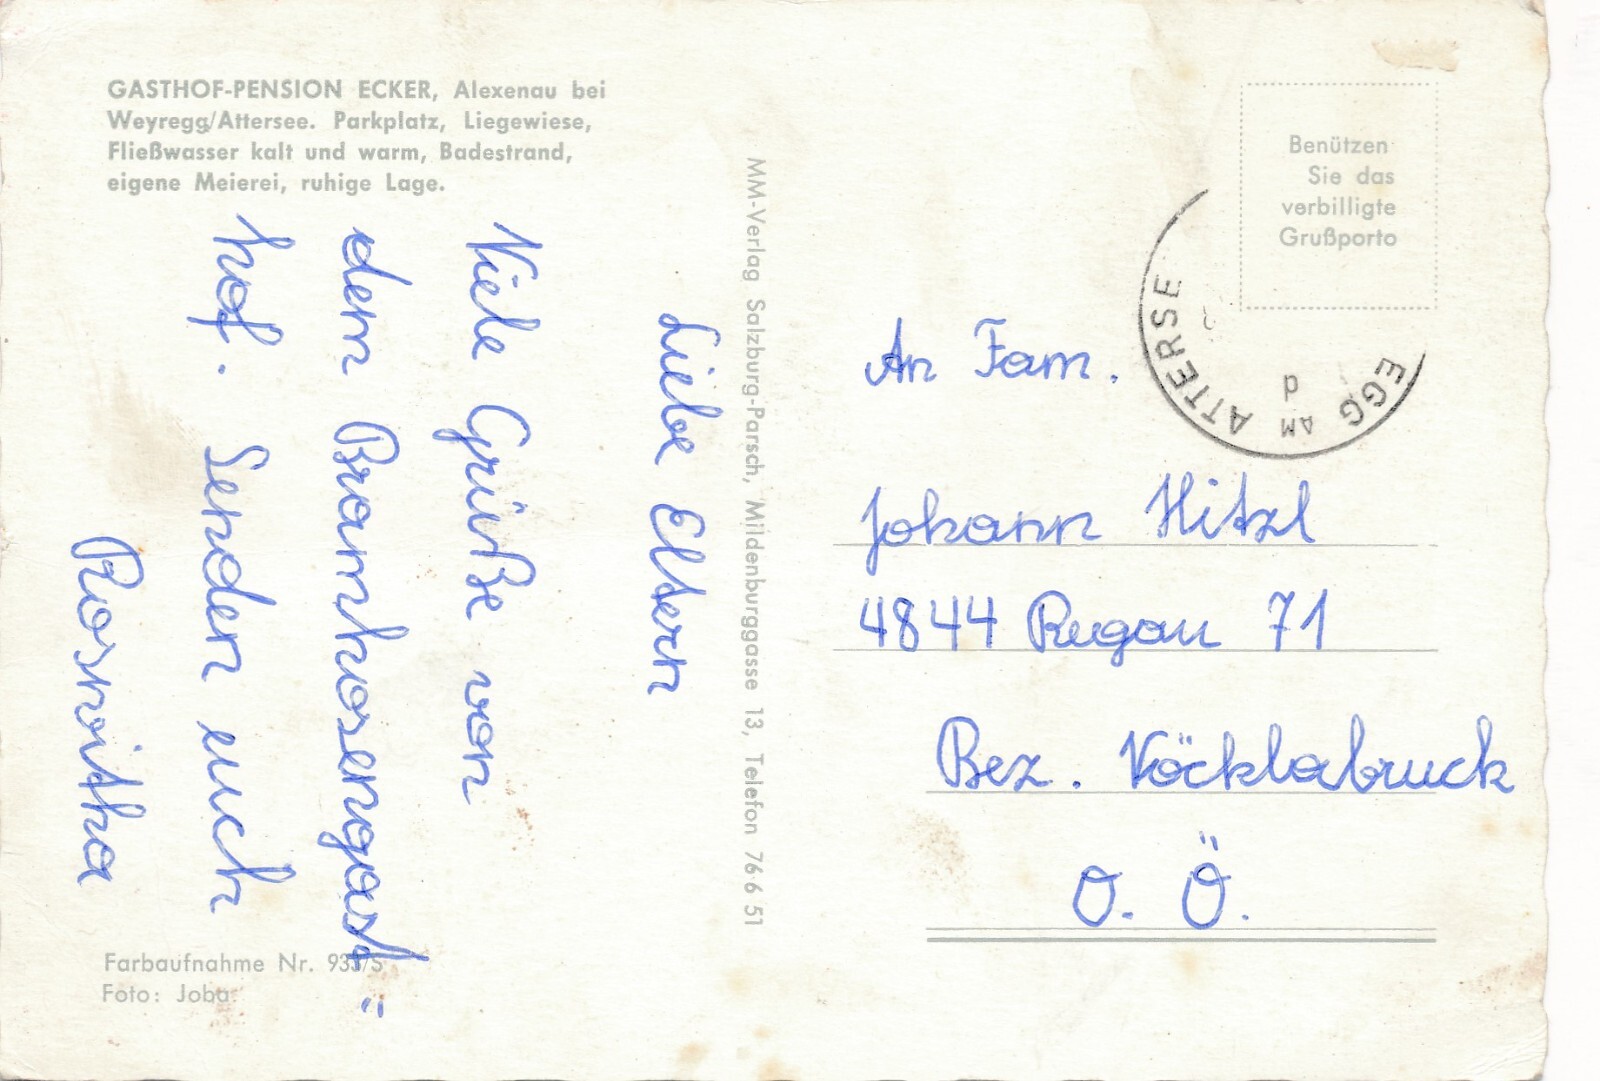 GASTHOF-PENSION ECKER, Alexenau bei
Weyregg/Attersee. Parkplatz, Liegewiese,
Fließwasser kalt und warm, Badestrand,
eigene Meierei, ruhige Lage.
Liebe Eltern
Viele Grüße von
dem Bramhosengast=
hof. Senden euch
Roswitha
Farbaufnahme Nr. 933/S
Foto: Joba
MM-Verlag Salzburg-Parsch, Mildenburggasse 13, Telefon 76 6 51
Benützen
Sie das
verbilligte
Grußporto
EGG AM ATTERSE
d
An Fam.
Johann Hitzl
4844 Regau 71
Bez. Vöcklabruck
O. Ö.